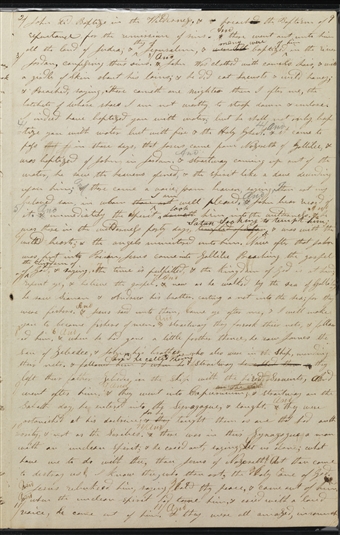 John did Baptize in the Wilderness, & preached the Baptism of
repentance for the remission of sins. & there went out unto him
all the land of Judea, & Jerusalem, & baptized in the river
Jordan, confessing their sins, & John was clothed with camels hair, & with
a girdle of skin about his loins; & he did eat locusts & wild honey;
& Preached, saying, there cometh one mightier than I after me, the
latchet of whose shoes I am not worthy to stoop down & unloose.
I indeed have baptized you with water, but he shall not only bap
tize you with water but with fire & the Holy Ghost. & it came to
pass in those days, that Jesus came from Nazareth of Gallilee, &
was baptized of John in Jordan; & straitway coming up out of the
water, he saw the heavens opened, & the spirit like a dove decending
upon him; & there came a voice from heaven saying, thou art my
beloved son in whom I am well pleased, & John bear record
& immediately the spirit took him into the wilderness &
in the wilderness forty days, Satan seeking to tempt him; & was with the
wild beasts; & the angels ministered unto him. Now after that John
was put into prison, Jesus came into Gallilee Preaching the gospel
of the kingdom of God; & saying, the time is fulfilled, & the kingdom of God is at hand
repent ye, & believe the gospel, & now as he walked by the sea of Gallilee
he saw Simon & Andrew his brother, casting a net into the sea, for they
were fishers, & Jesus said unto them, Come ye after me, & I will make
you to become fishers of men; & straitway they forsook their nets, & followed
him, & when he had gone a little further thence, he saw James the
son of Zebedee, & John his brother, who also were in the Ship, mending
their nets, & he called them, & straitway they
left their father Zebedee in the Ship with the hired servants, and
went after him; & they went into Capernaum; & straitway on the
Sabbath day, he entered into the Synagogue, & taught, & they were
astonished at his doctrine, for he taught them as one that had auth
ority, & not as the Scribes, & there was in their Synagogue a man
with an unclean spirit; & he cried out, saying, let us alone; what
have we to do with thee, thou Jesus of Nazareth? Art thou come
to destroy us? I know thee, who thou art, the Holy One of God,
& Jesus rebuked him, saying, Hold thy peace, & come out of him
& when the unclean spirit had torn him, & cried with a loud
voice, he came out of him, & they were all amazed, insomuch